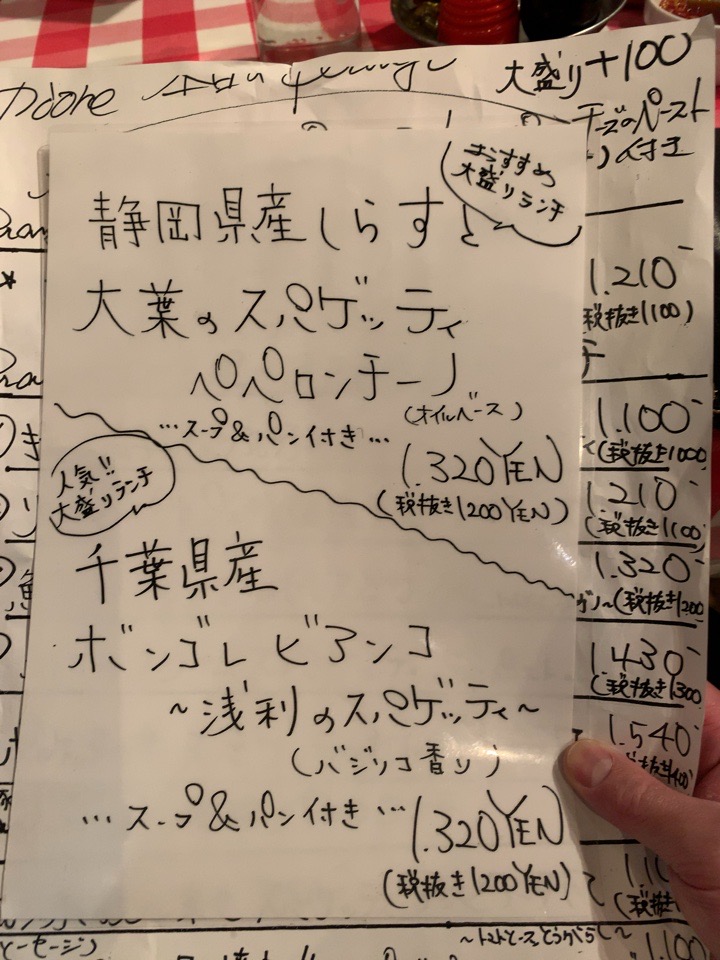 大盛り+100
チーズのペースト
付き
おすすめ
大盛りランチ
静岡県産しらすと
大葉のスパゲッティ
ペペロンチーノ
(オイルベース)
…スープ&パン付き…
1.320YEN
(税抜き1200YEN)
人気!!
大盛りランチ
千葉県産
ボンゴレ ビアンコ
~浅利のスパゲッティ~
(バジリコ香り)
…スープ&パン付き…
1.320YEN
(税抜き1200YEN)
1.210-
税抜き1100)
1.100-
(税抜き1000
1.210-
(税抜き1100
1.320-
(税抜き1200
1.430-
(税抜き1300
1.540-
~トマトソース、とうがらし~
1.100